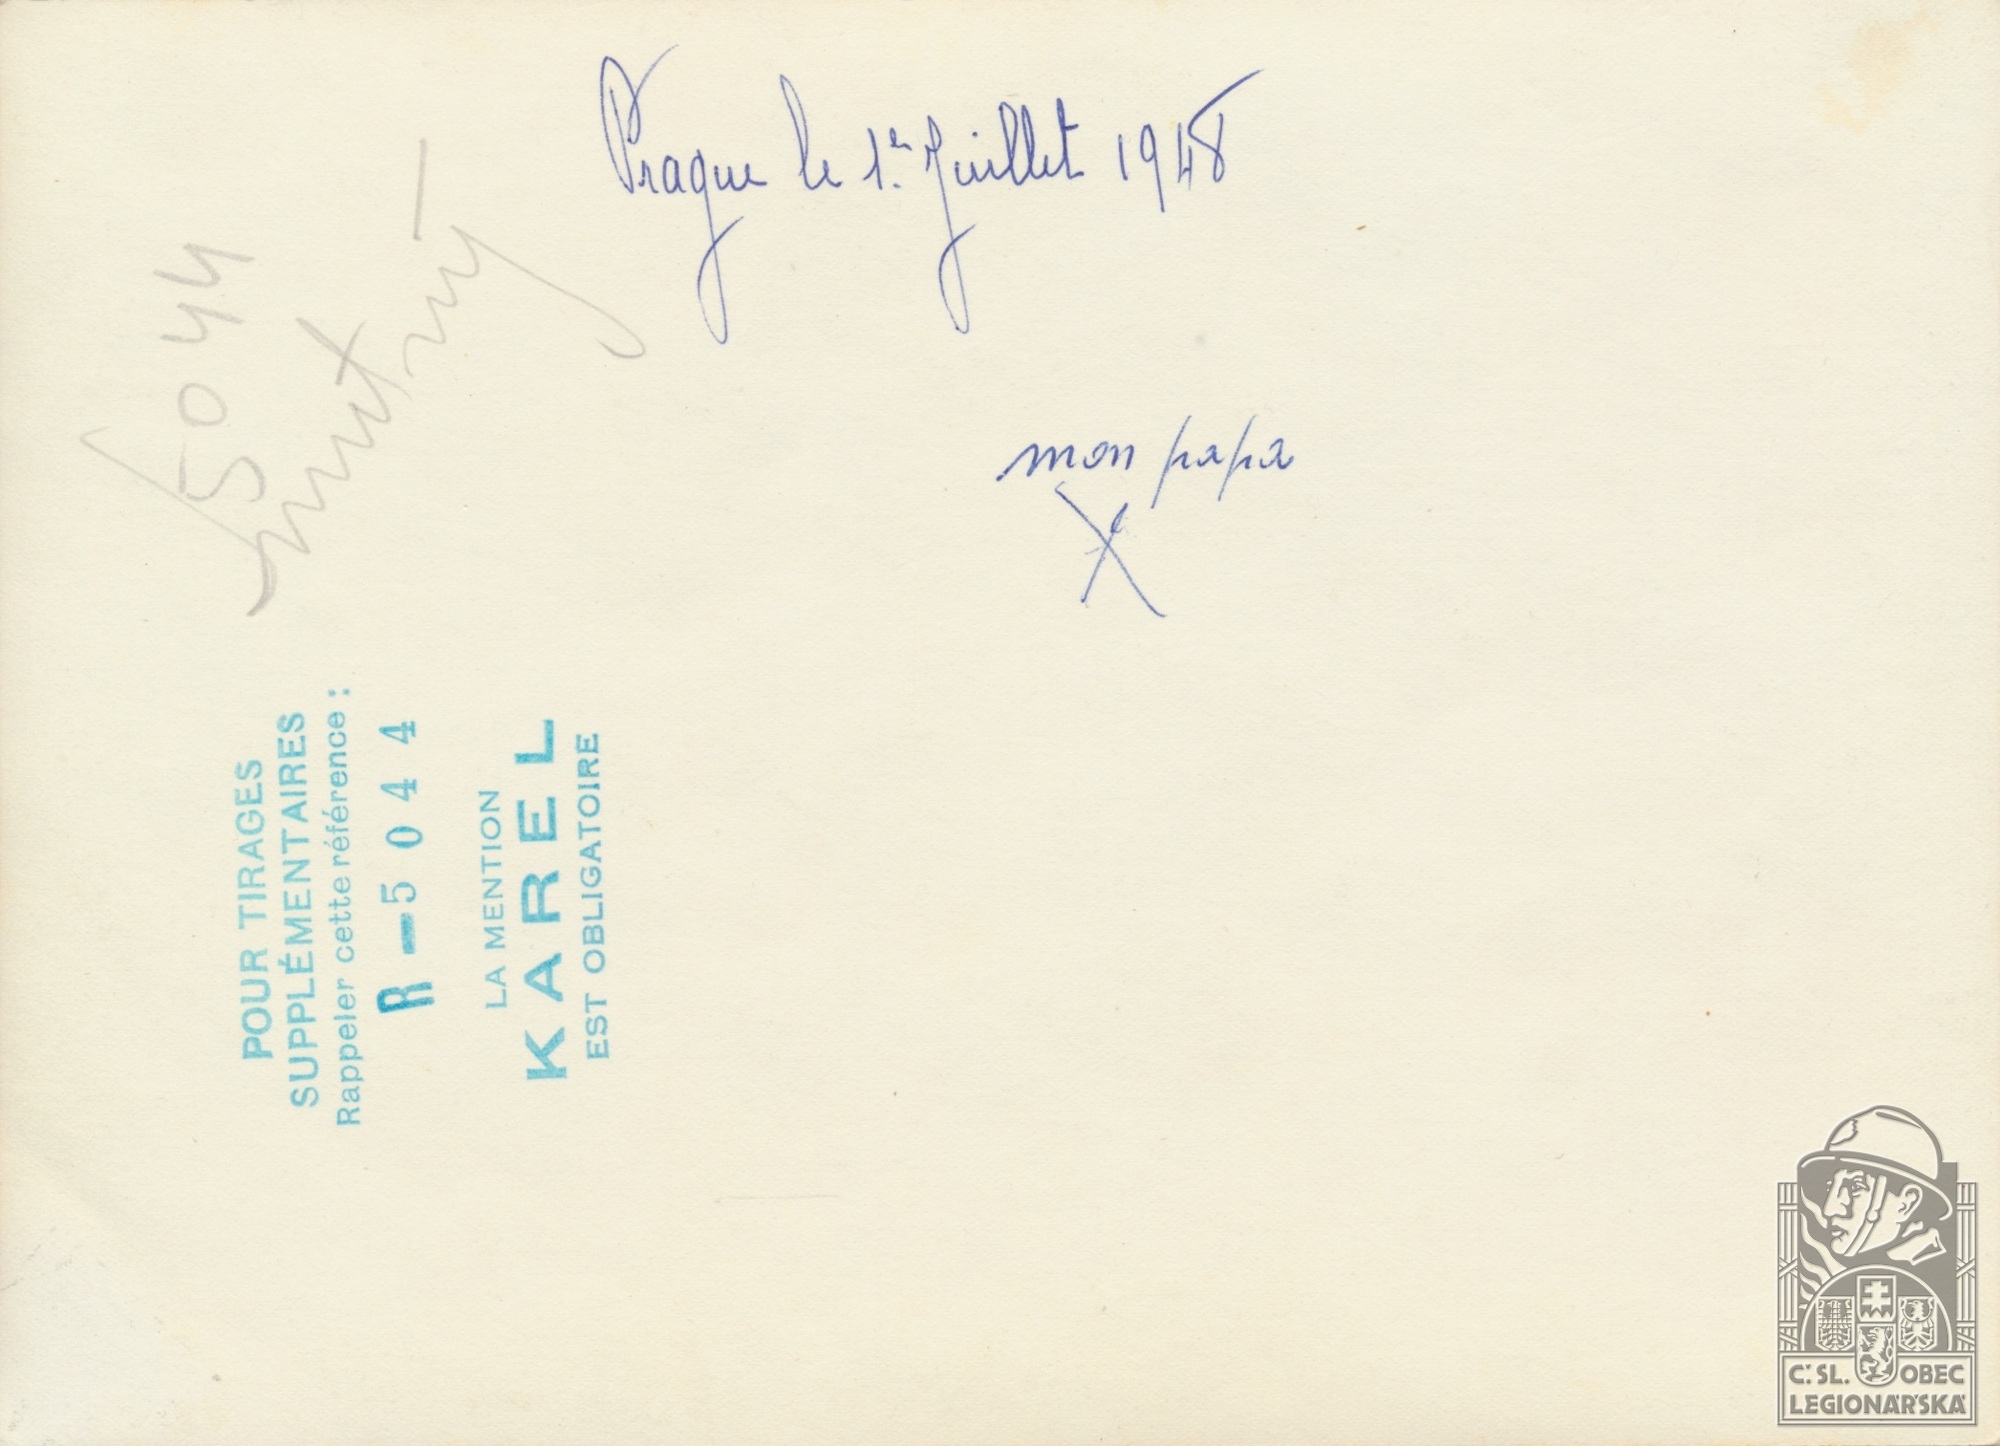 Prague le 1er Juillet 1948
mon papa
X
5044
POUR TIRAGES
SUPPLÉMENTAIRES
Rappeler cette référence :
R - 5044
LA MENTION
KAREL
EST OBLIGATOIRE
Č.SL. OBEC
LEGIONÁŘSKÁ